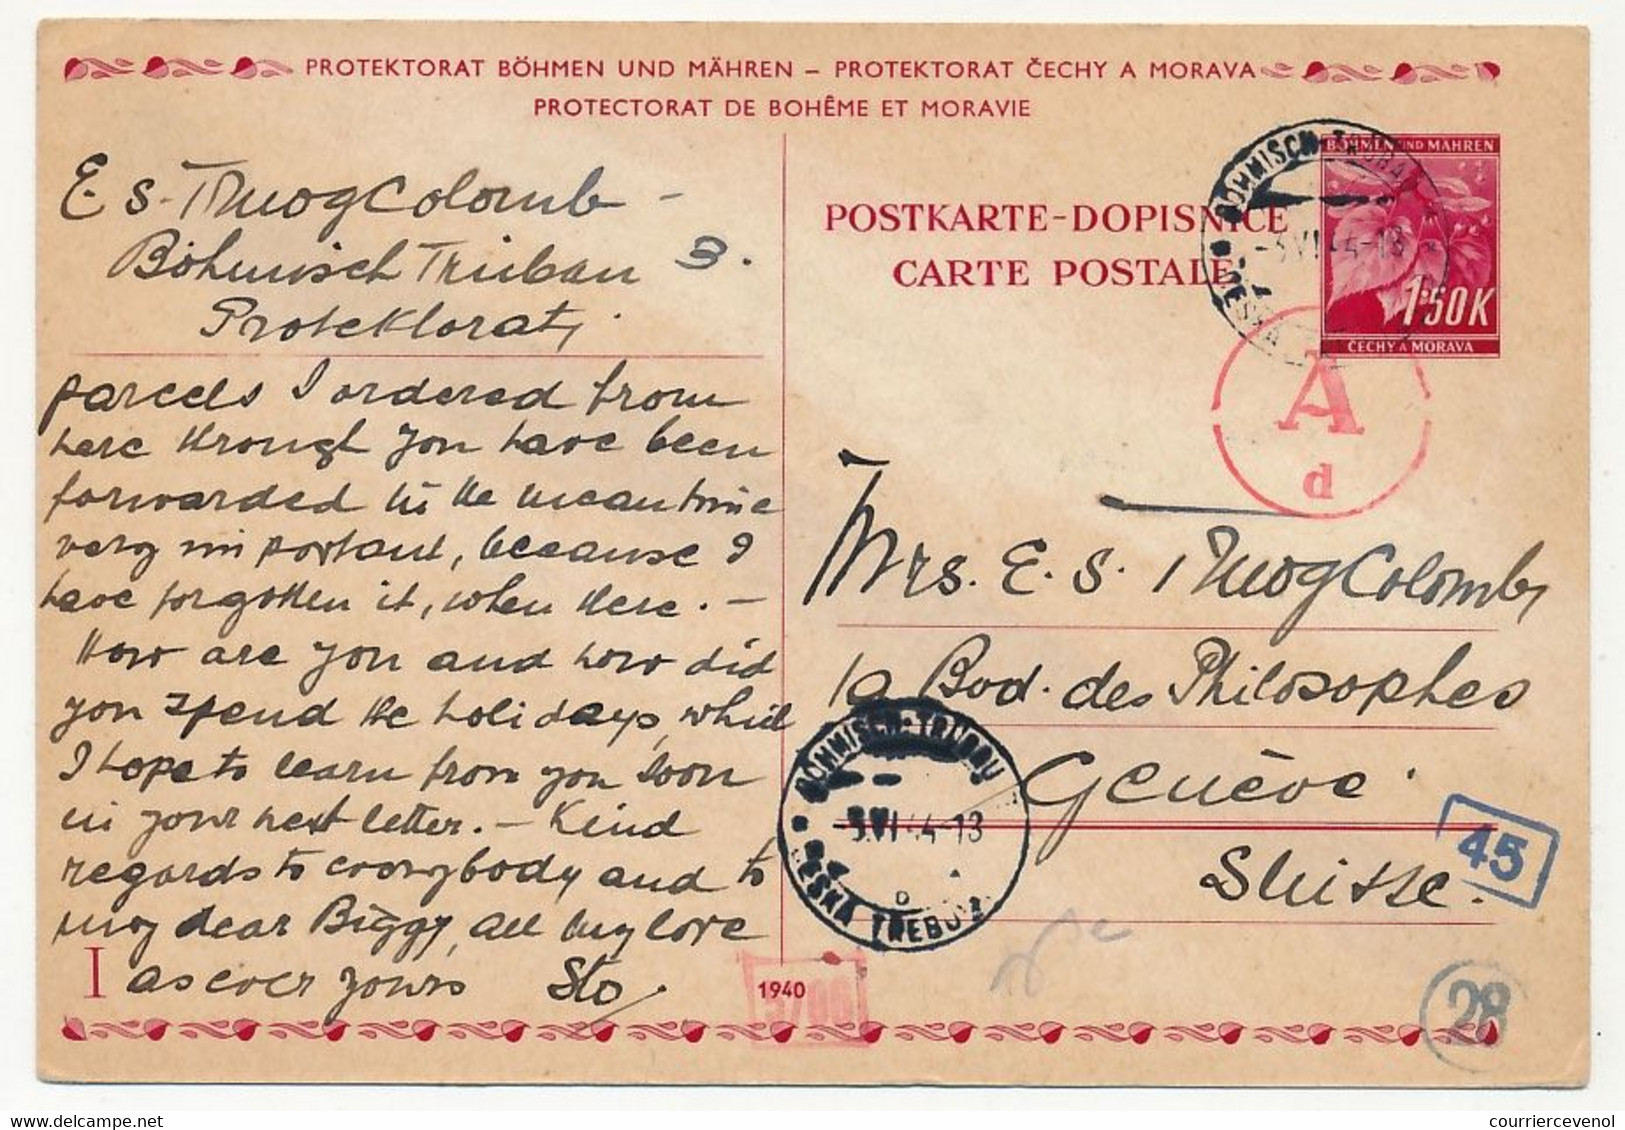 PROTEKTORAT BÖHMEN UND MÄHREN – PROTEKTORAT ČECHY A MORAVA
PROTECTORAT DE BOHÊME ET MORAVIE
E. S.
Böhmisch Trübau 3.
Protektorat,
parcels I ordered from
here through you have been
forwarded in the meantime
very important, because I
have forgotten it, when there. –
How are you and how did
you spend the holidays, which
I hope to learn from you soon
in your next letter. – Kind
regards to everybody and to
my dear Biggy, all my love
I as ever yours Sto.
1940
POSTKARTE-DOPISNICE
CARTE POSTALE
BÖHMEN UND MÄHREN
1·50K
ČECHY A MORAVA
BÖHMISCH-TRÜBAU
-3.VI.44-13
ČESKÁ
A
d
Mrs. E. S.
Bvd. des Philosophes
Genève
Suisse.
BÖHMISCH-TRÜBAU
-3.VI.44-13
ČESKÁ TŘEBOVÁ
45
28
courriercevenol.com